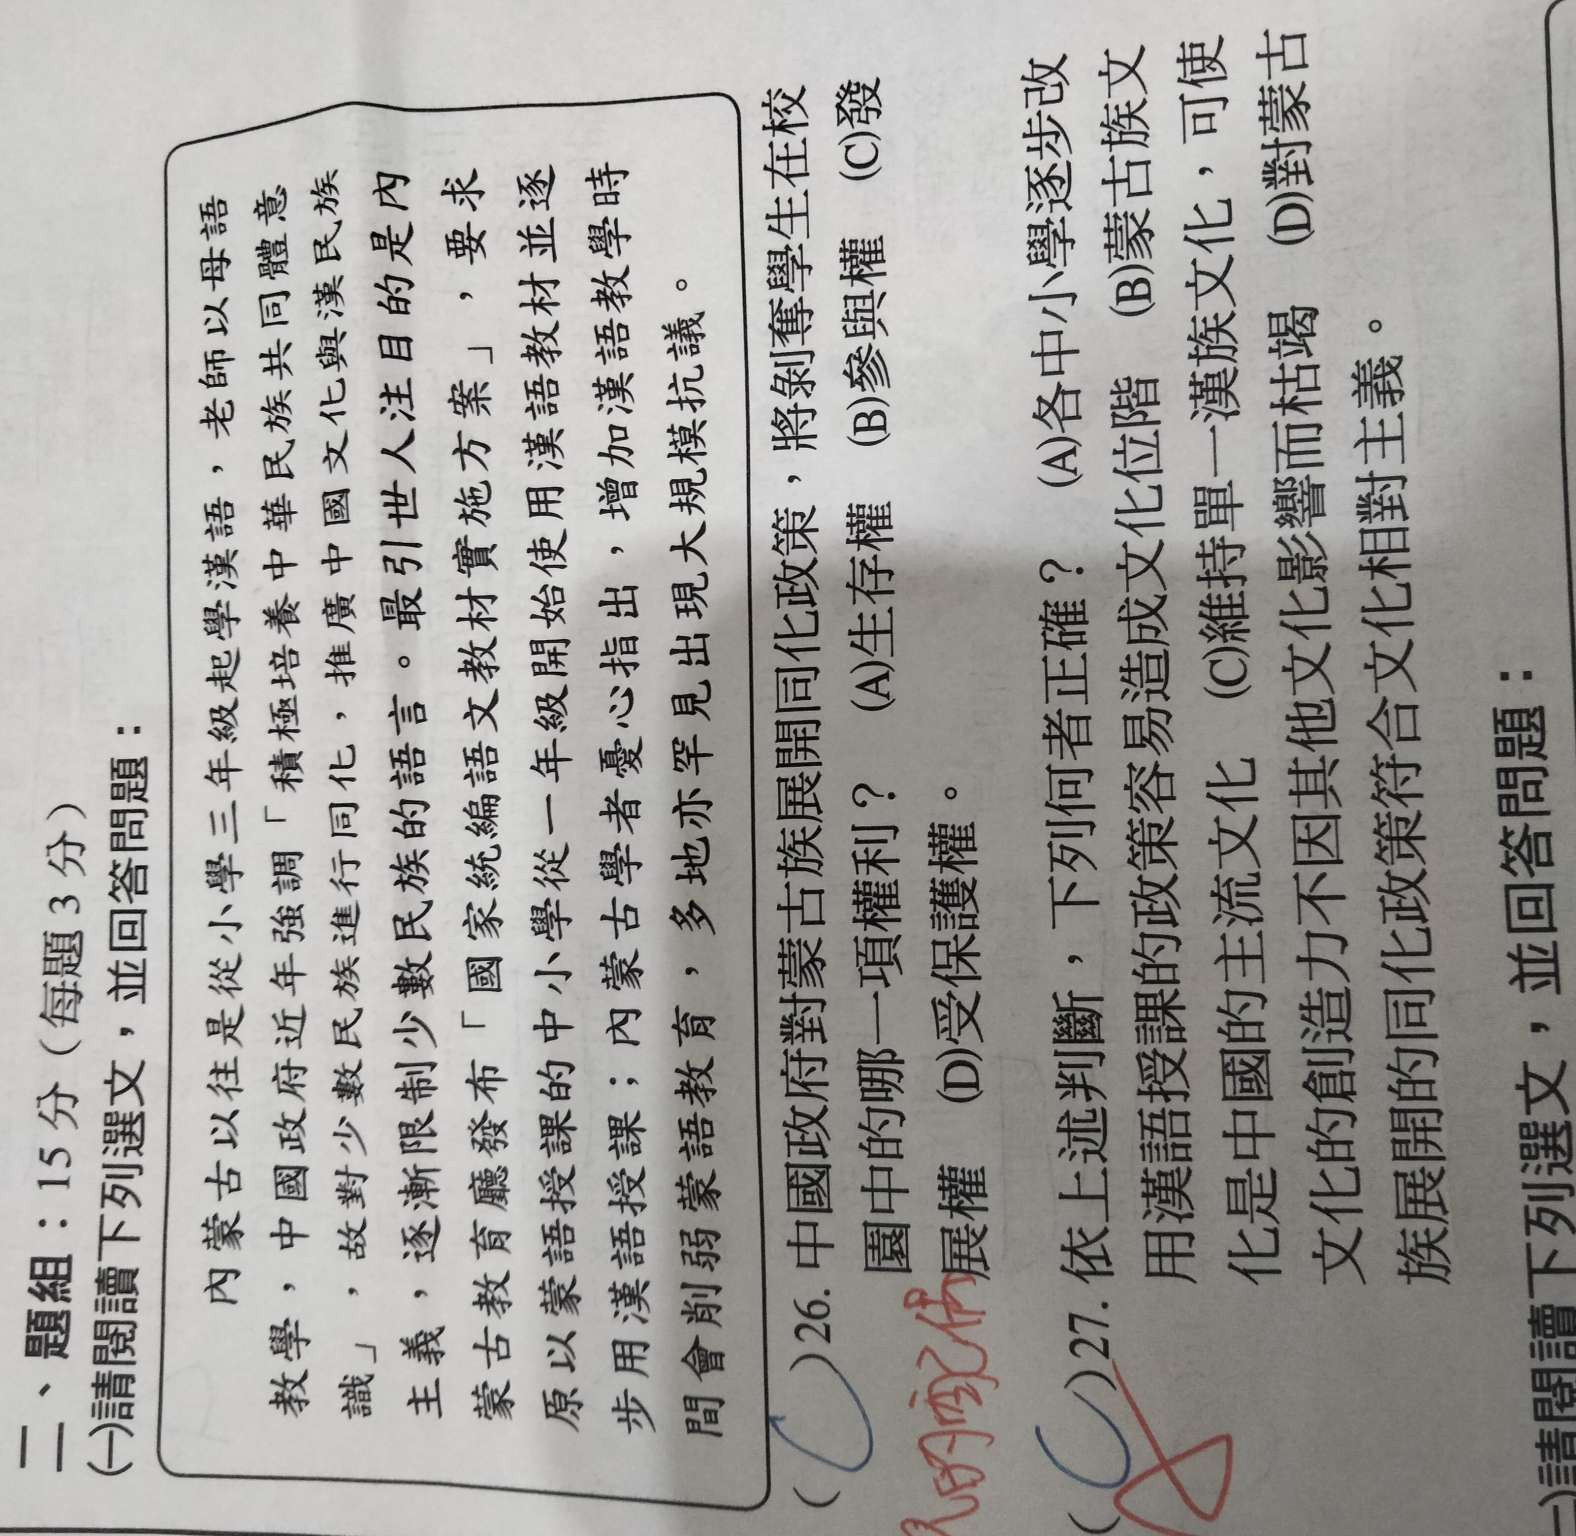 二、題組：15分（每題3分）
(一)請閱讀下列選文，並回答問題：
內蒙古以往是從小學三年級起學漢語，老師以母語
教學，中國政府近年強調「積極培養中華民族共同體意
識」，故對少數民族進行同化，推廣中國文化與漢民族
主義，逐漸限制少數民族的語言。最引世人注目的是內
蒙古教育廳發布「國家統編語文教材實施方案」，要求
原以蒙語授課的中小學從一年級開始使用漢語教材並逐
步用漢語授課；內蒙古學者憂心指出，增加漢語教學時
間會削弱蒙語教育，多地亦罕見出現大規模抗議。
(C)26. 中國政府對蒙古族展開同化政策，將剝奪學生在校
園中的哪一項權利？ (A)生存權 (B)參與權 (C)發
展權 (D)受保護權。
(C)27. 依上述判斷，下列何者正確？ (A)各中小學逐步改
用漢語授課的政策容易造成文化位階 (B)蒙古族文
化是中國的主流文化 (C)維持單一漢族文化，可使
文化的創造力不因其他文化影響而枯竭 (D)對蒙古
族展開的同化政策符合文化相對主義。
請閱讀下列選文，並回答問題：